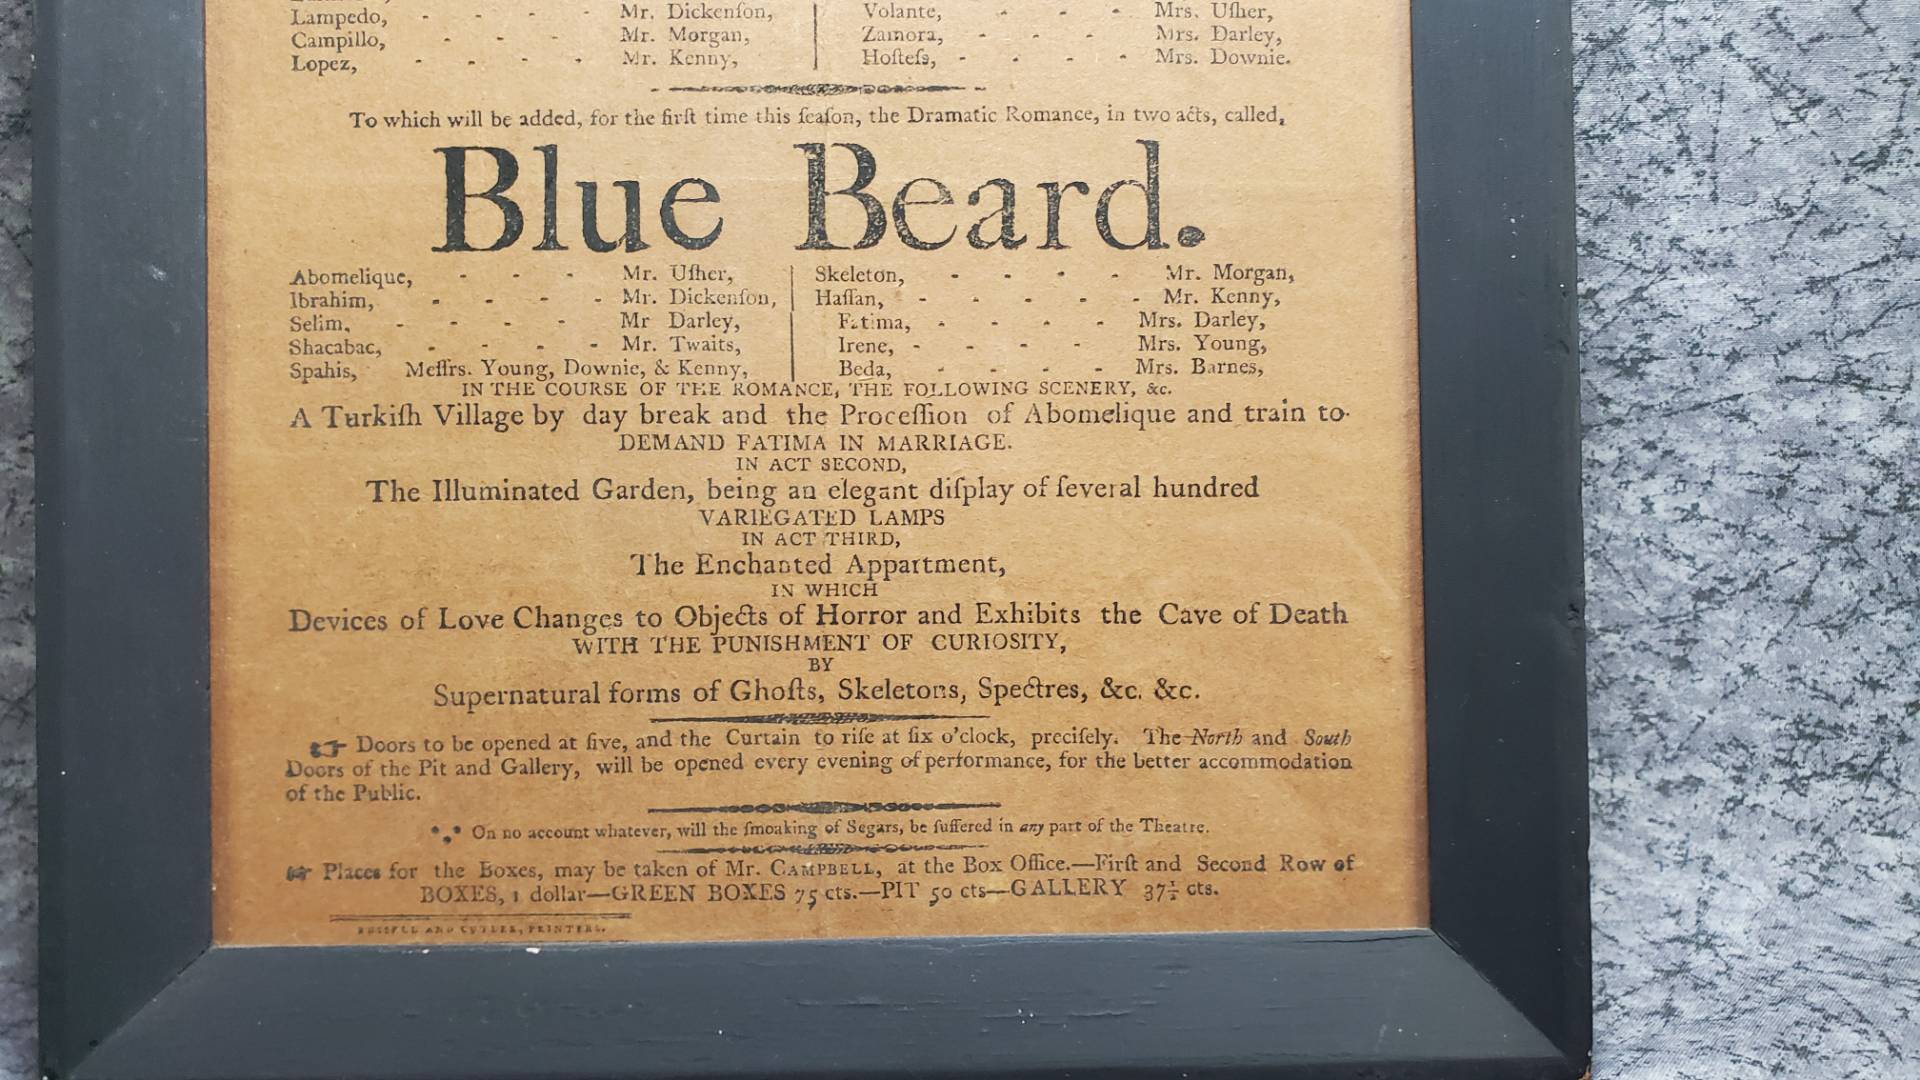 Lampedo, - - - - Mr. Dickenſon, | Volante, - - - Mrs. Uſher,
Campillo, - - - Mr. Morgan, | Zamora, - - - - Mrs. Darley,
Lopez, - - - - Mr. Kenny, | Hoſteſs, - - - - Mrs. Downie.
To which will be added, for the firſt time this ſeaſon, the Dramatic Romance, in two acts, called,
Blue Beard.
Abomelique, - - - Mr. Uſher, | Skeleton, - - - - Mr. Morgan,
Ibrahim, - - - - Mr. Dickenſon, | Haſſan, - - - - - Mr. Kenny,
Selim, - - - - Mr Darley, | Fatima, - - - - Mrs. Darley,
Shacabac, - - - - Mr. Twaits, | Irene, - - - - Mrs. Young,
Spahis, Meſſrs. Young, Downie, & Kenny, | Beda, - - - - Mrs. Barnes,
IN THE COURSE OF THE ROMANCE, THE FOLLOWING SCENERY, &c.
A Turkiſh Village by day break and the Proceſſion of Abomelique and train to
DEMAND FATIMA IN MARRIAGE.
IN ACT SECOND,
The Illuminated Garden, being an elegant diſplay of ſeveral hundred
VARIEGATED LAMPS
IN ACT THIRD,
The Enchanted Appartment,
IN WHICH
Devices of Love Changes to Objects of Horror and Exhibits the Cave of Death
WITH THE PUNISHMENT OF CURIOSITY,
BY
Supernatural forms of Ghoſts, Skeletons, Spectres, &c. &c.
☞ Doors to be opened at five, and the Curtain to riſe at ſix o'clock, preciſely. The North and South
Doors of the Pit and Gallery, will be opened every evening of performance, for the better accommodation
of the Public.
*.* On no account whatever, will the ſmoaking of Segars, be ſuffered in any part of the Theatre.
☞ Places for the Boxes, may be taken of Mr. CAMPBELL, at the Box Office.—Firſt and Second Row of
BOXES, 1 dollar—GREEN BOXES 75 cts.—PIT 50 cts—GALLERY 37½ cts.
RUSSELL AND CUTLER, PRINTERS.